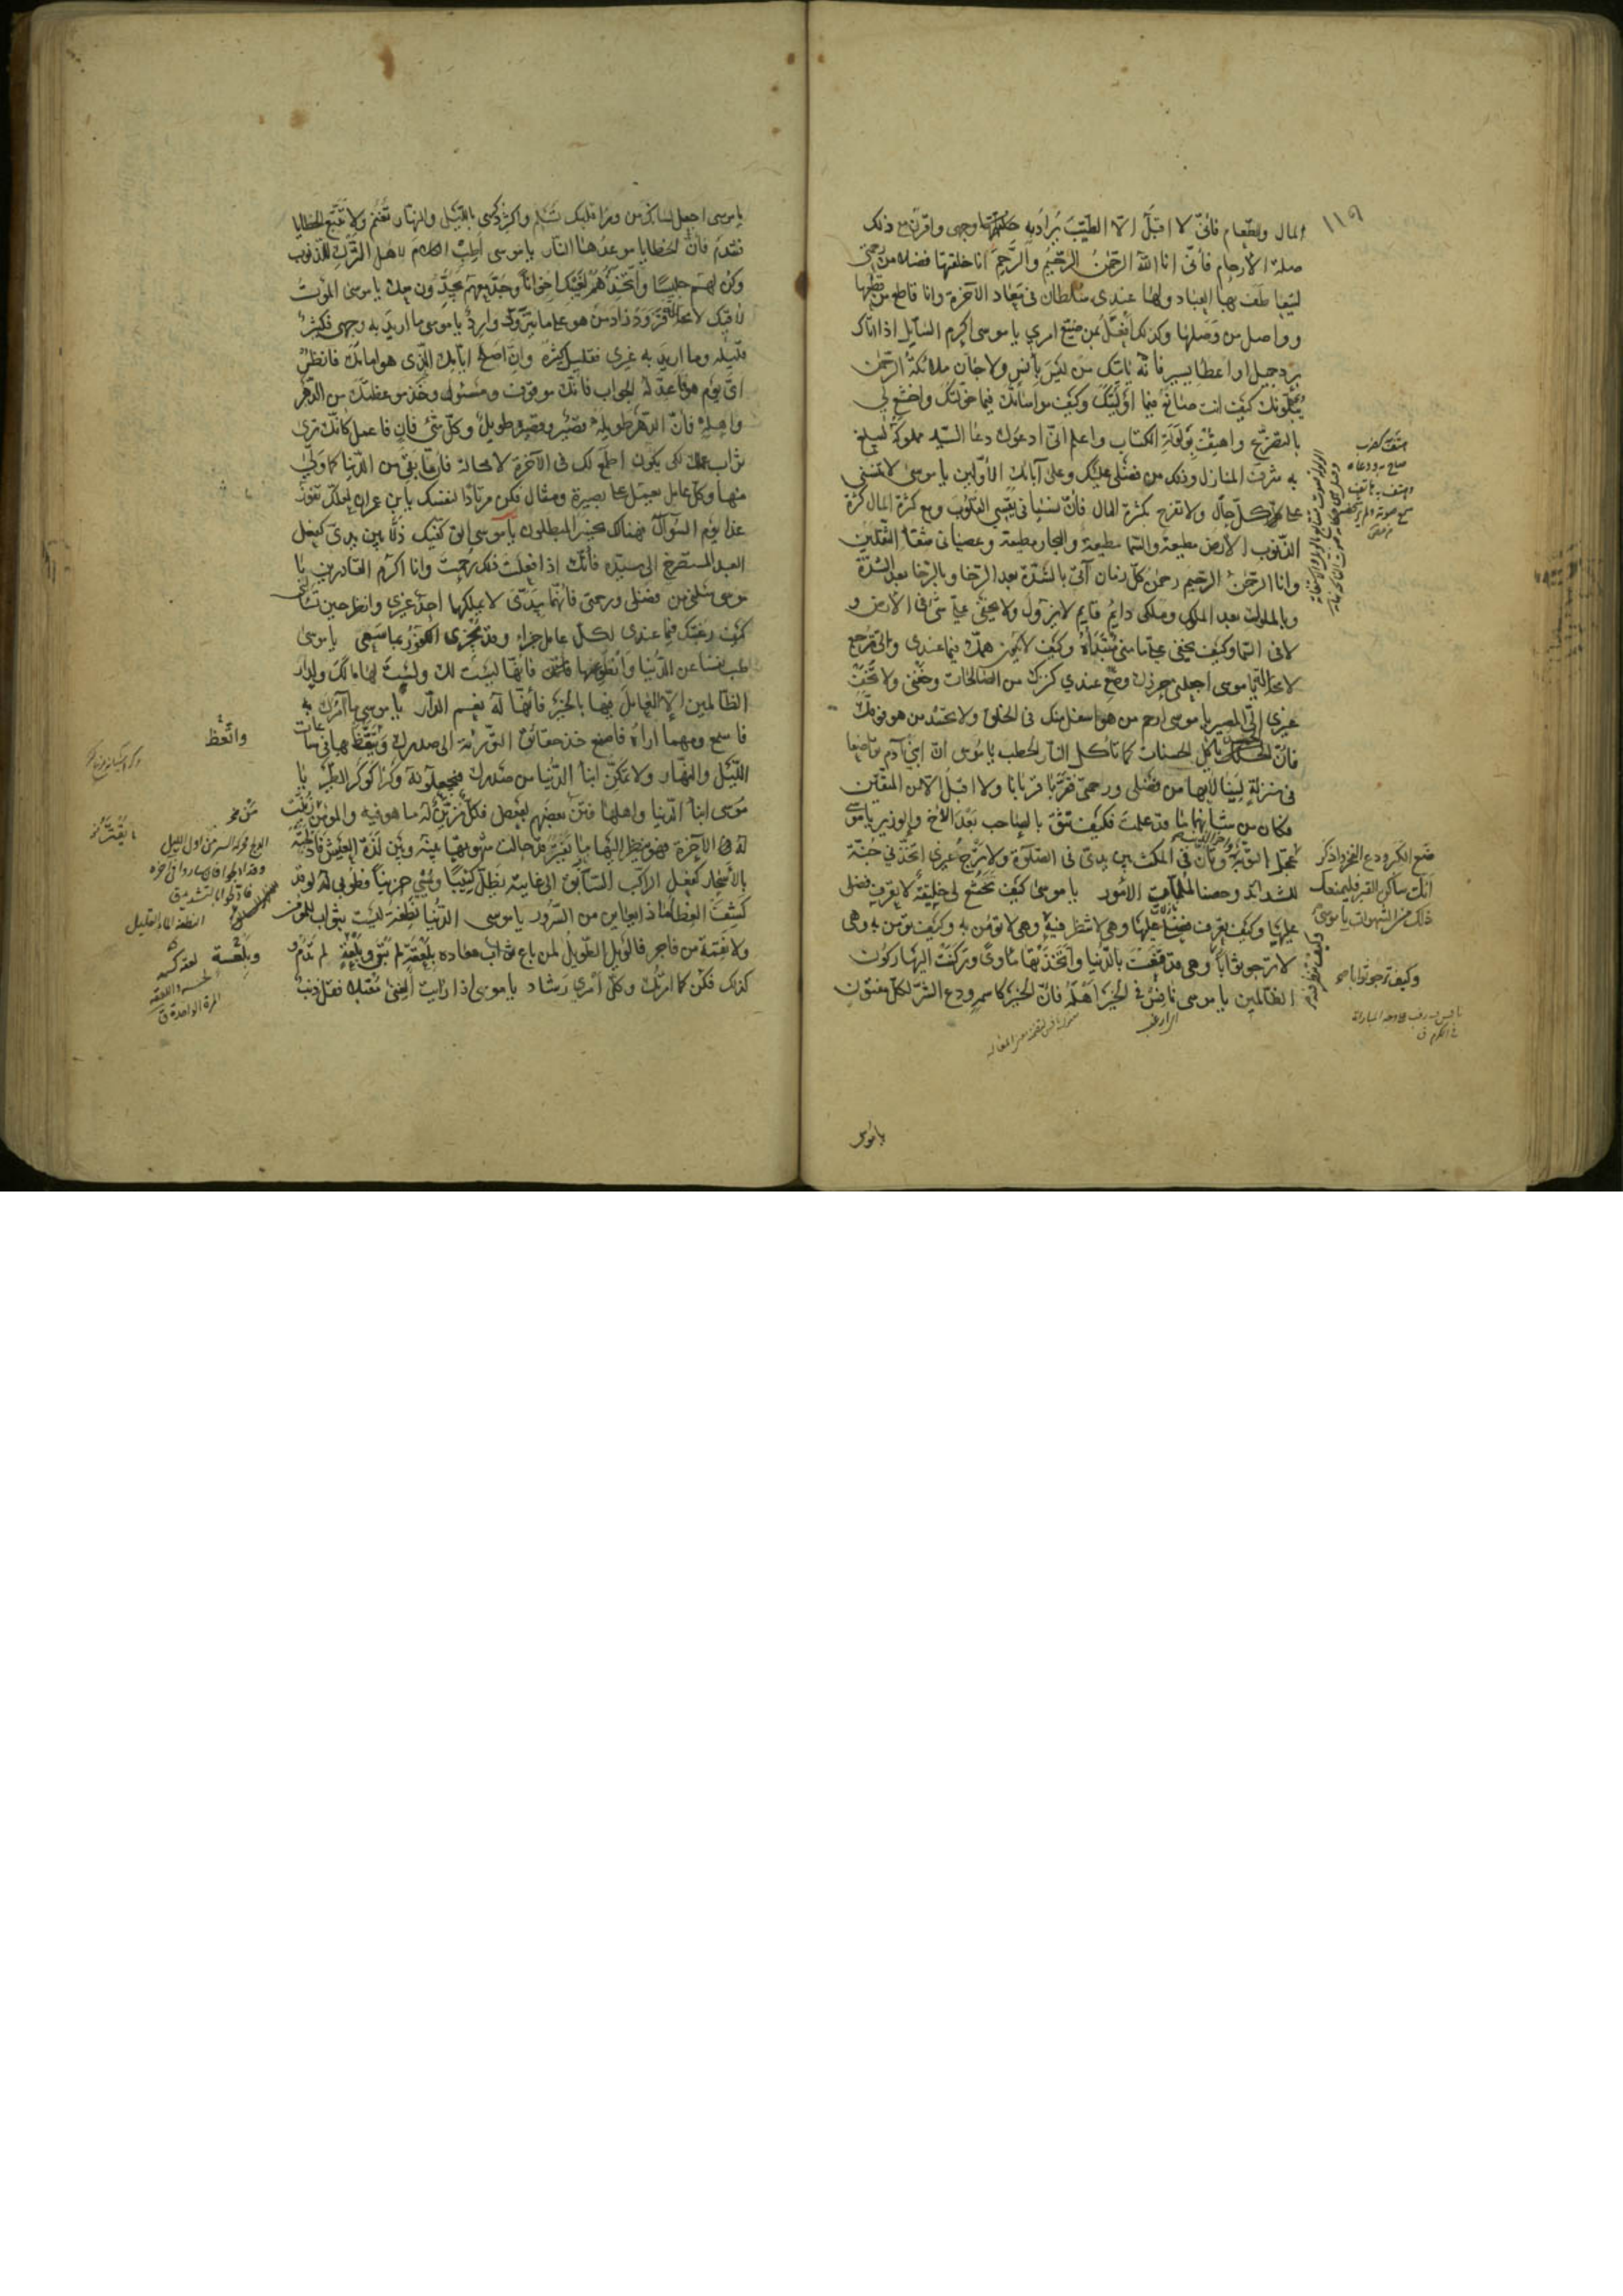 ١١٩
المال والطعام فانّى لا اقبل الا الطيّب يراد به وجهى واقرن مع ذلك
صلة الأرحام فأنّى انا اللّه الرّحمن الرّحيم والرّحم انا خلقتها فضلا من رحمتى
ليتعاطف بها العباد ولها عندى سلطان فى معاد الآخرة وانا قاطع من قطعها
وواصل من وصلها وكذلك افعل بمن ضيّع امرى يا موسى اكرم السّايل اذا اتاك
بردّ جميل او اعطا يسير فانّه يأتيك من ليس بأنس ولا جانّ ملائكة الرّحمن
يبلونك كيف انت صانع فيما اوليتك وكيف مواساتك فيما خوّلتك واخشع لى
بالتضرّع واهتف بولولة الكتاب واعلم انّى ادعوك دعا السّيّد مملوكه ليبلغ
به شرف المنازل وذلك من فضلى عليك وعلى آبائك الأولين يا موسى لا تنسنى
على كلّ حال ولا تفرح بكثرة المال فأنّ نسيانى يقسى القلوب ومع كثرة المال كثرة
الذّنوب الأرض مطيعة والسّما مطيعة والبحار مطيعة وعصيانى شقآ الثقلين
وانا الرّحمن الرّحيم رحمن كلّ زمان آتى بالشدّة بعد الرّخا وبالرّخا بعد الشدّة
وبالملوك بعد الملوك وملكى دايم قايم لا يزول ولا يخفى علىّ شى فى الأرض و
لا فى السّما وكيف يخفى علىّ ما منّى مبتدأه وكيف لا يكون همّك فيما عندى والىّ ترجع
لا محالة يا موسى اجعلنى حرزك وضع عندى كنزك من الصّالحات وخفنى ولا تخف
غيرى الىّ المصير يا موسى ارحم من هو اسفل منك فى الخلق ولا تحسد من هو فوقك
فانّ الحسد يأكل الحسنات كما تأكل النّار الحطب يا موسى انّ ابنى آدم تواضعا
فى منزلة لينالا بها من فضلى ورحمتى فقرّبا قربانا ولا اقبل الا من المتّقين
فكان من شأنهما ما قد علمت فكيف تثق بالصاحب بعد الأخ والوزير يا موسى
ضع الكبر ودع الفخر واذكر
انّك ساكن القبر فليمنعك
ذلك من الشهوات يا موسى
عجّل التّوبة وتأنّ فى المكث بين يدىّ فى الصّلوة ولا ترج غيرى اتّخذنى جُنّة
للشدايد وحصنا لملمّات الأمور يا موسى كيف تخشع لى خليقة لا تعرف فضلى
عليها وكيف تعرف فضلى عليها وهى لا تنظر فيه
وكيف تنظر فيه
وهى لا تؤمن به وكيف تؤمن به وهى
لا ترجو ثوابا
وكيف ترجو ثوابا
وهى قد قنعت بالدّنيا واتّخذتها مأوىً وركنت اليها ركون
الظّالمين يا موسى نافس فى الخير اهله فانّ الخير كاسمه ودع الشرّ لكلّ مفتون
يا موسى
يا موسى اجعل لسانك من ورا قلبك تسلم واكثر ذكرى بالليل والنهار تغنم ولا تتبع الخطايا
فتندم فانّ الخطايا موعدها النّار يا موسى اطب الكلام لأهل التّرك للذّنوب
وكن لهم جليسًا واتّخذهم لغيبك اخوانًا وجدّ معهم يجدّون معك يا موسى الموت
لاقيك لا محالة فتزوّد زاد من هو على ما يتزوّد وارد يا موسى ما اريد به وجهى فكثير
قليله وما اريد به غيرى فقليل كثيره وانّ اصلح ايّامك الّذى هو امامك فانظر
اىّ يوم هو فاعدّ له الجواب فانّك موقوف ومسئول وخذ موعظتك من الدّهر
واهله فانّ الدّهر طويله قصير وقصيره طويل وكلّ شئ فان فاعمل كانّك ترى
ثواب عملك لكى يكون اطمع لك فى الآخرة لا محالة فانّ ما بقى من الدّنيا كما ولّى
منها وكلّ عامل يعمل على بصيرة ومثال فكن مرتادًا لنفسك يا بن عمران لعلّك تفوز
غدا يوم السّوال فهناك يخسر المبطلون يا موسى الق كفّيك ذلّا بين يدىّ كفعل
العبد المستصرخ الى سيّده فانّك اذا فعلت ذلك رُحمت وانا اكرم القادرين يا
موسى سلنى من فضلى ورحمتى فانّهما بيدى لا يملكهما احد غيرى وانظر حين تسألنى
كيف رغبتك فيما عندى لكلّ عامل جزاء وقد يجزى الكفور بما سعى يا موسى
طب نفسًا عن الدّنيا وانطو عنها فانّها ليست لك ولست لها ما لك ولدار
الظّالمين الّا لعامل فيها بالخير فانّها له نعم الدّار يا موسى ما آمرك به
فاسمع ومهما اراه فاصنع خذ حقائق التّورية الى صدرك وتيقّظ بها فى ساعات
واتّعظ
اللّيل والنّهار ولا تمكّن ابنا الدّنيا من صدرك فيجعلونه وكرًا كوكر الطّير يا
موسى ابنا الدّنيا واهلها فتن بعضهم لبعض فكلّ مزيّن له ما هو فيه والمؤمن زيّنت
له الآخرة فهو ينظر اليها ما يفتر قد حالت شهوتها بينه وبين لذّة العيش فادلجته
بالأسحار كفعل الراكب السّابق الى غايته يظلّ كئيبًا ويمسى حزينًا فطوبى له لو قد
كشف الغطا ماذا يعاين من السّرور يا موسى الدّنيا نطفة ليست بثواب للمؤمن
ولا نقمة من فاجر فالويل الطّويل لمن باع ثواب معاده بلعقة لم تبق وبلعسة لم تدم و
كذلك فكن كما امرتك وكلّ امرى رشاد يا موسى اذا رأيت الغنى مقبلا فقل ذنب
النطفة الماء القليل
وبلعسة
المرة الواحدة ق